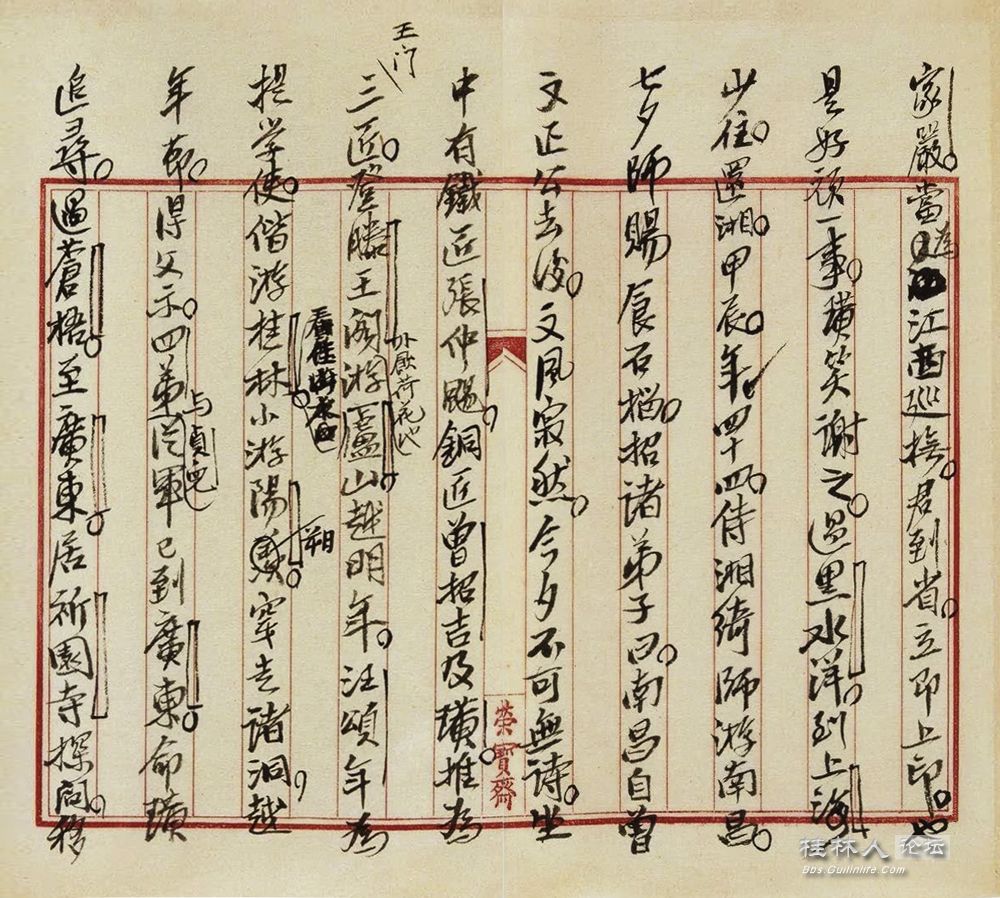 家嚴當為江西巡撫君到省立即上印
是好頑一事璜笑謝之過黑水洋到上海
少住還湘甲辰年四十四侍湘綺師游南昌
七夕師賜食石榴招諸弟子曰南昌自曾
文正公去後文風寂然今夕不可無詩坐
中有鐵匠張仲颺銅匠曾招吉及璜推為
王门
三匠登滕王閣游廬山越明年汪頌年為
外飲荷花池
提学使偕游桂林小游陽朔穿走諸洞越
看桂林山水
年節得父示四弟從軍已到廣東命璜
与貞兒
追尋過蒼梧至廣東居祈園寺探问移
榮寶齋
桂林人论坛
Bbs.Guilinlife.Com